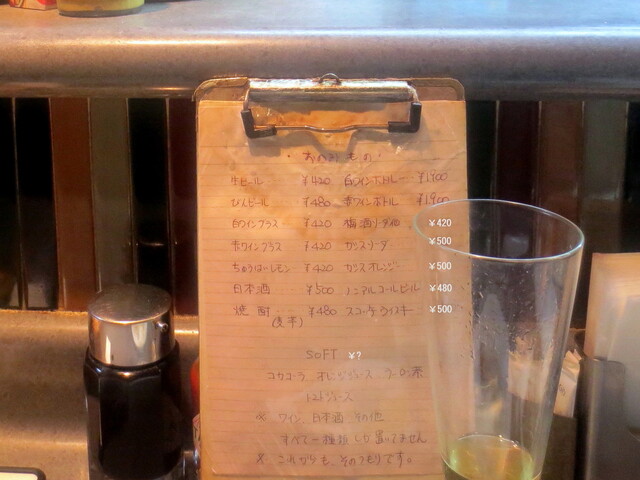 ・おのみもの・
生ビール ¥420 白ワインボトル ¥1,900
びんビール ¥480 赤ワインボトル ¥1,900
白ワイングラス ¥420 梅酒ソーダ他 ¥420
赤ワイングラス ¥420 カシスソーダ ¥500
ちゅうはいレモン ¥420 カシスオレンジ ¥500
日本酒 ¥500 ノンアルコールビール ¥480
焼酎 ¥480 スコッチウイスキー ¥500
(麦芋)
SOFT ¥?
コカコーラ、オレンジジュース、ウーロン茶
トマトジュース
※ ワイン、日本酒、その他
すべて一種類しか置いてません
※ これからも、そのつもりです。